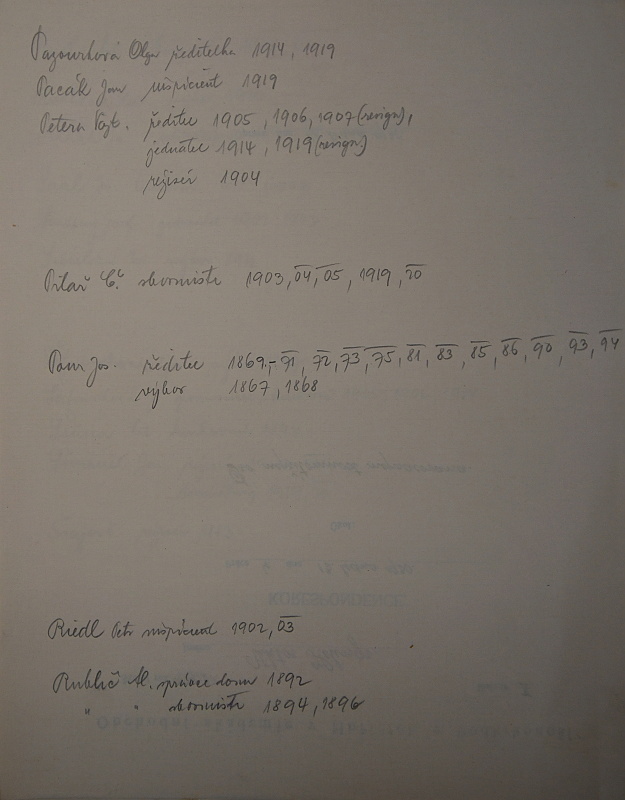 Pazourková Olga ředitelka 1914, 1919
Pacák Jan inspicient 1919
Petera Vojt. ředitel 1905, 1906, 1907 (resign),
jednatel 1914, 1919 (resign)
režisér 1904
Pilař Č. sbormistr 1903, 04, 05, 1919, 20
Pam Jos. ředitel 1869,- 71, 72, 73, 75, 81, 83, 85, 86, 90, 93, 94
výbor 1867, 1868
KORESPONDENCE
Riedl Petr inspicient 1902, 03
Rublič Al. správce domu 1892
" " sbormistr 1894, 1896